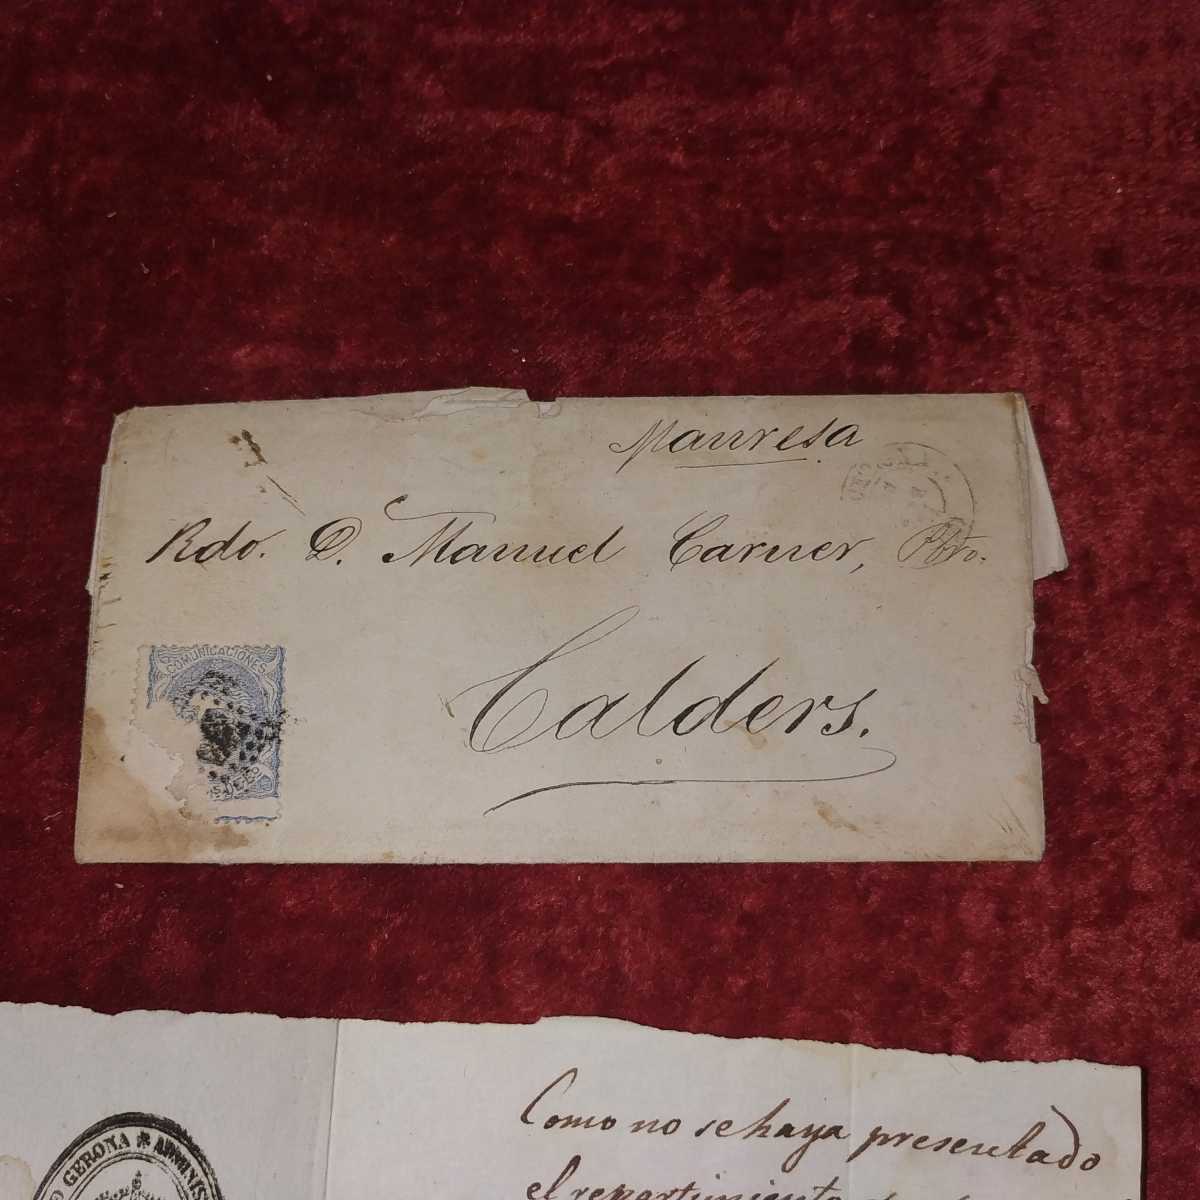 Manresa
Rdo. D. Manuel Carner, Pbro.
Calders.
COMUNICACIONES
GERONA * ADMINIS
Como no se haya presentado
el repartimiento